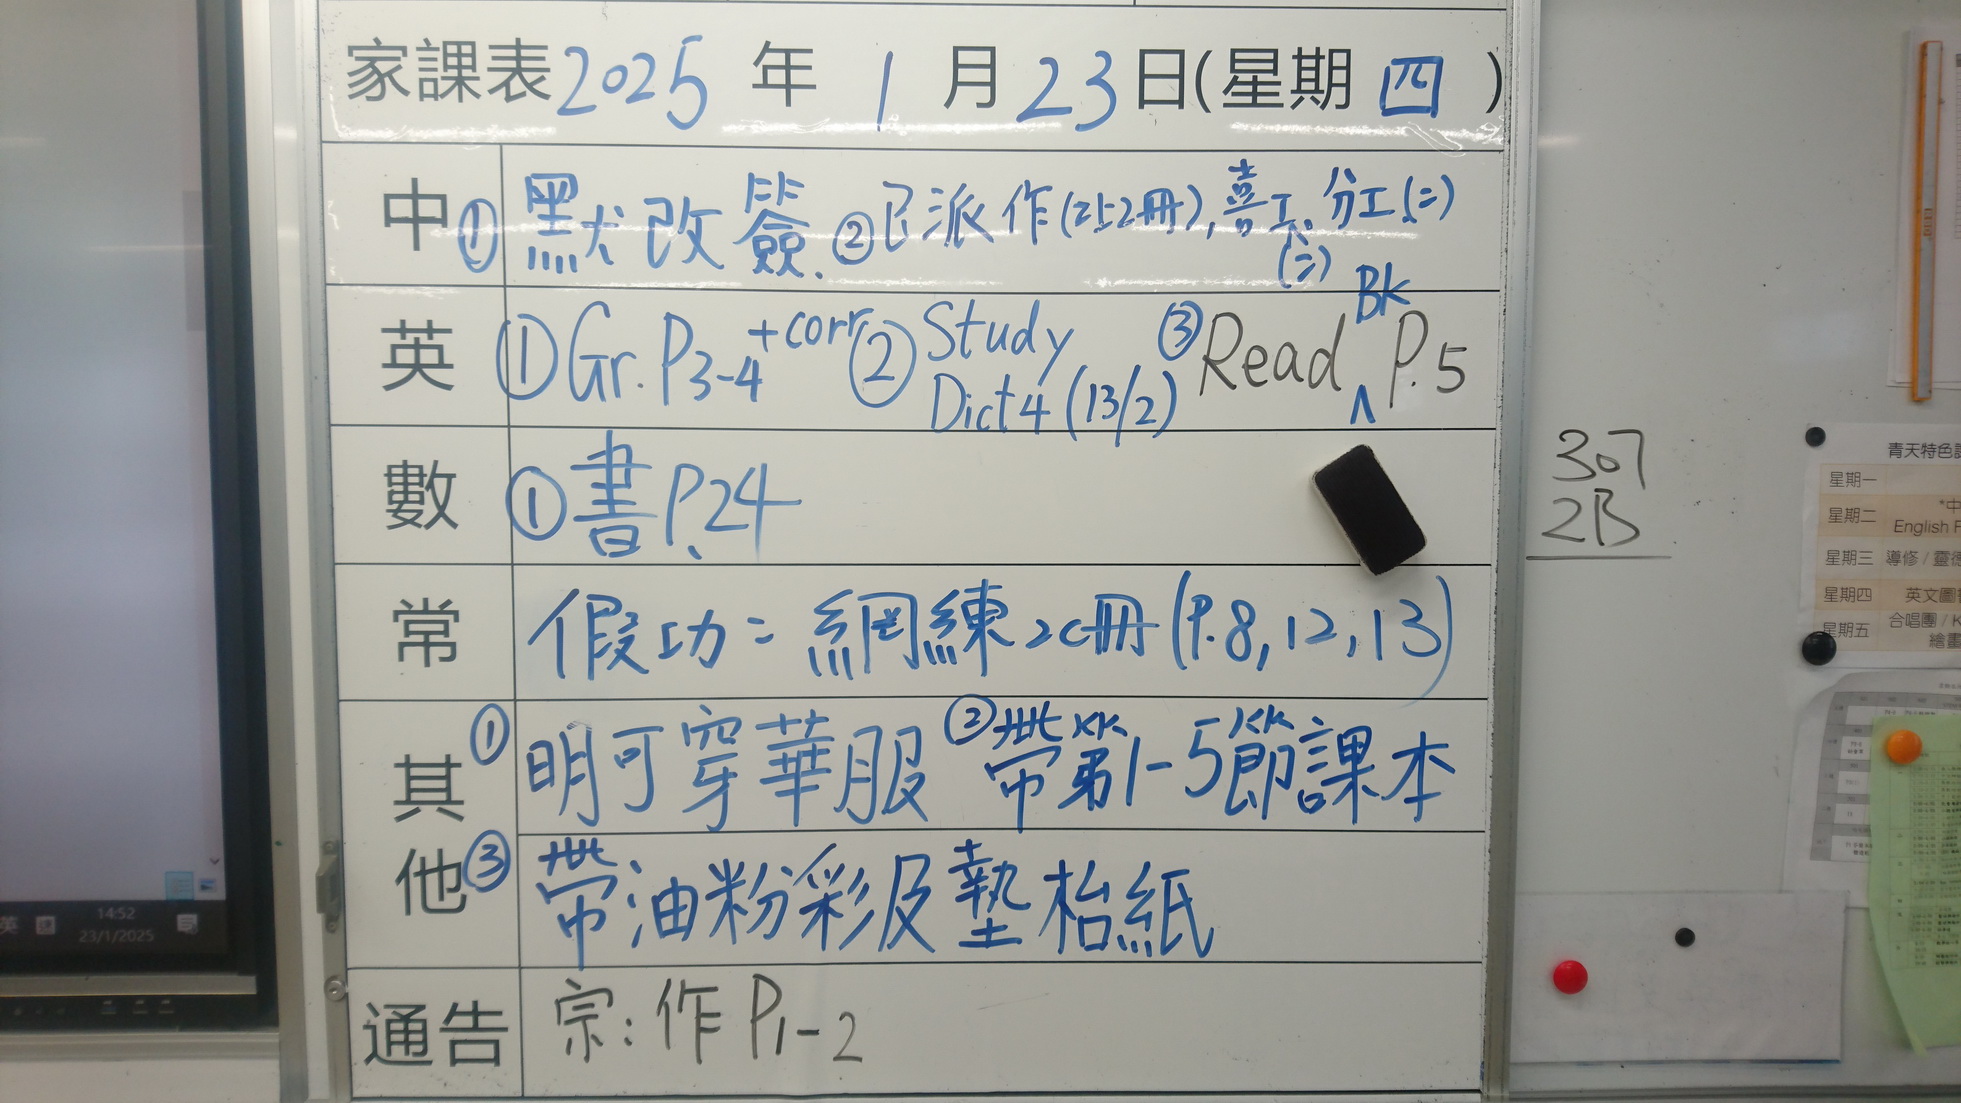 家課表2025年1月23日(星期四)
中 ① 默改簽. ②已派作(2上2冊), 喜工(二), 分工(二)
英 ①Gr. P3-4 +corr ② Study Dict 4 (13/2) ③Read Bk P.5
數 ①書P.24
常 假功: 網練2C冊(P.8, 12, 13)
其他 ① 明可穿華服 ②帶第1-5節課本
③ 帶油粉彩及墊枱紙
通告 宗: 作P1-2
307
2B
英
14:52
23/1/2025
青天特色
星期一
星期二
English
星期三 導修 /
星期四 英文圖
星期五 合唱團 / K